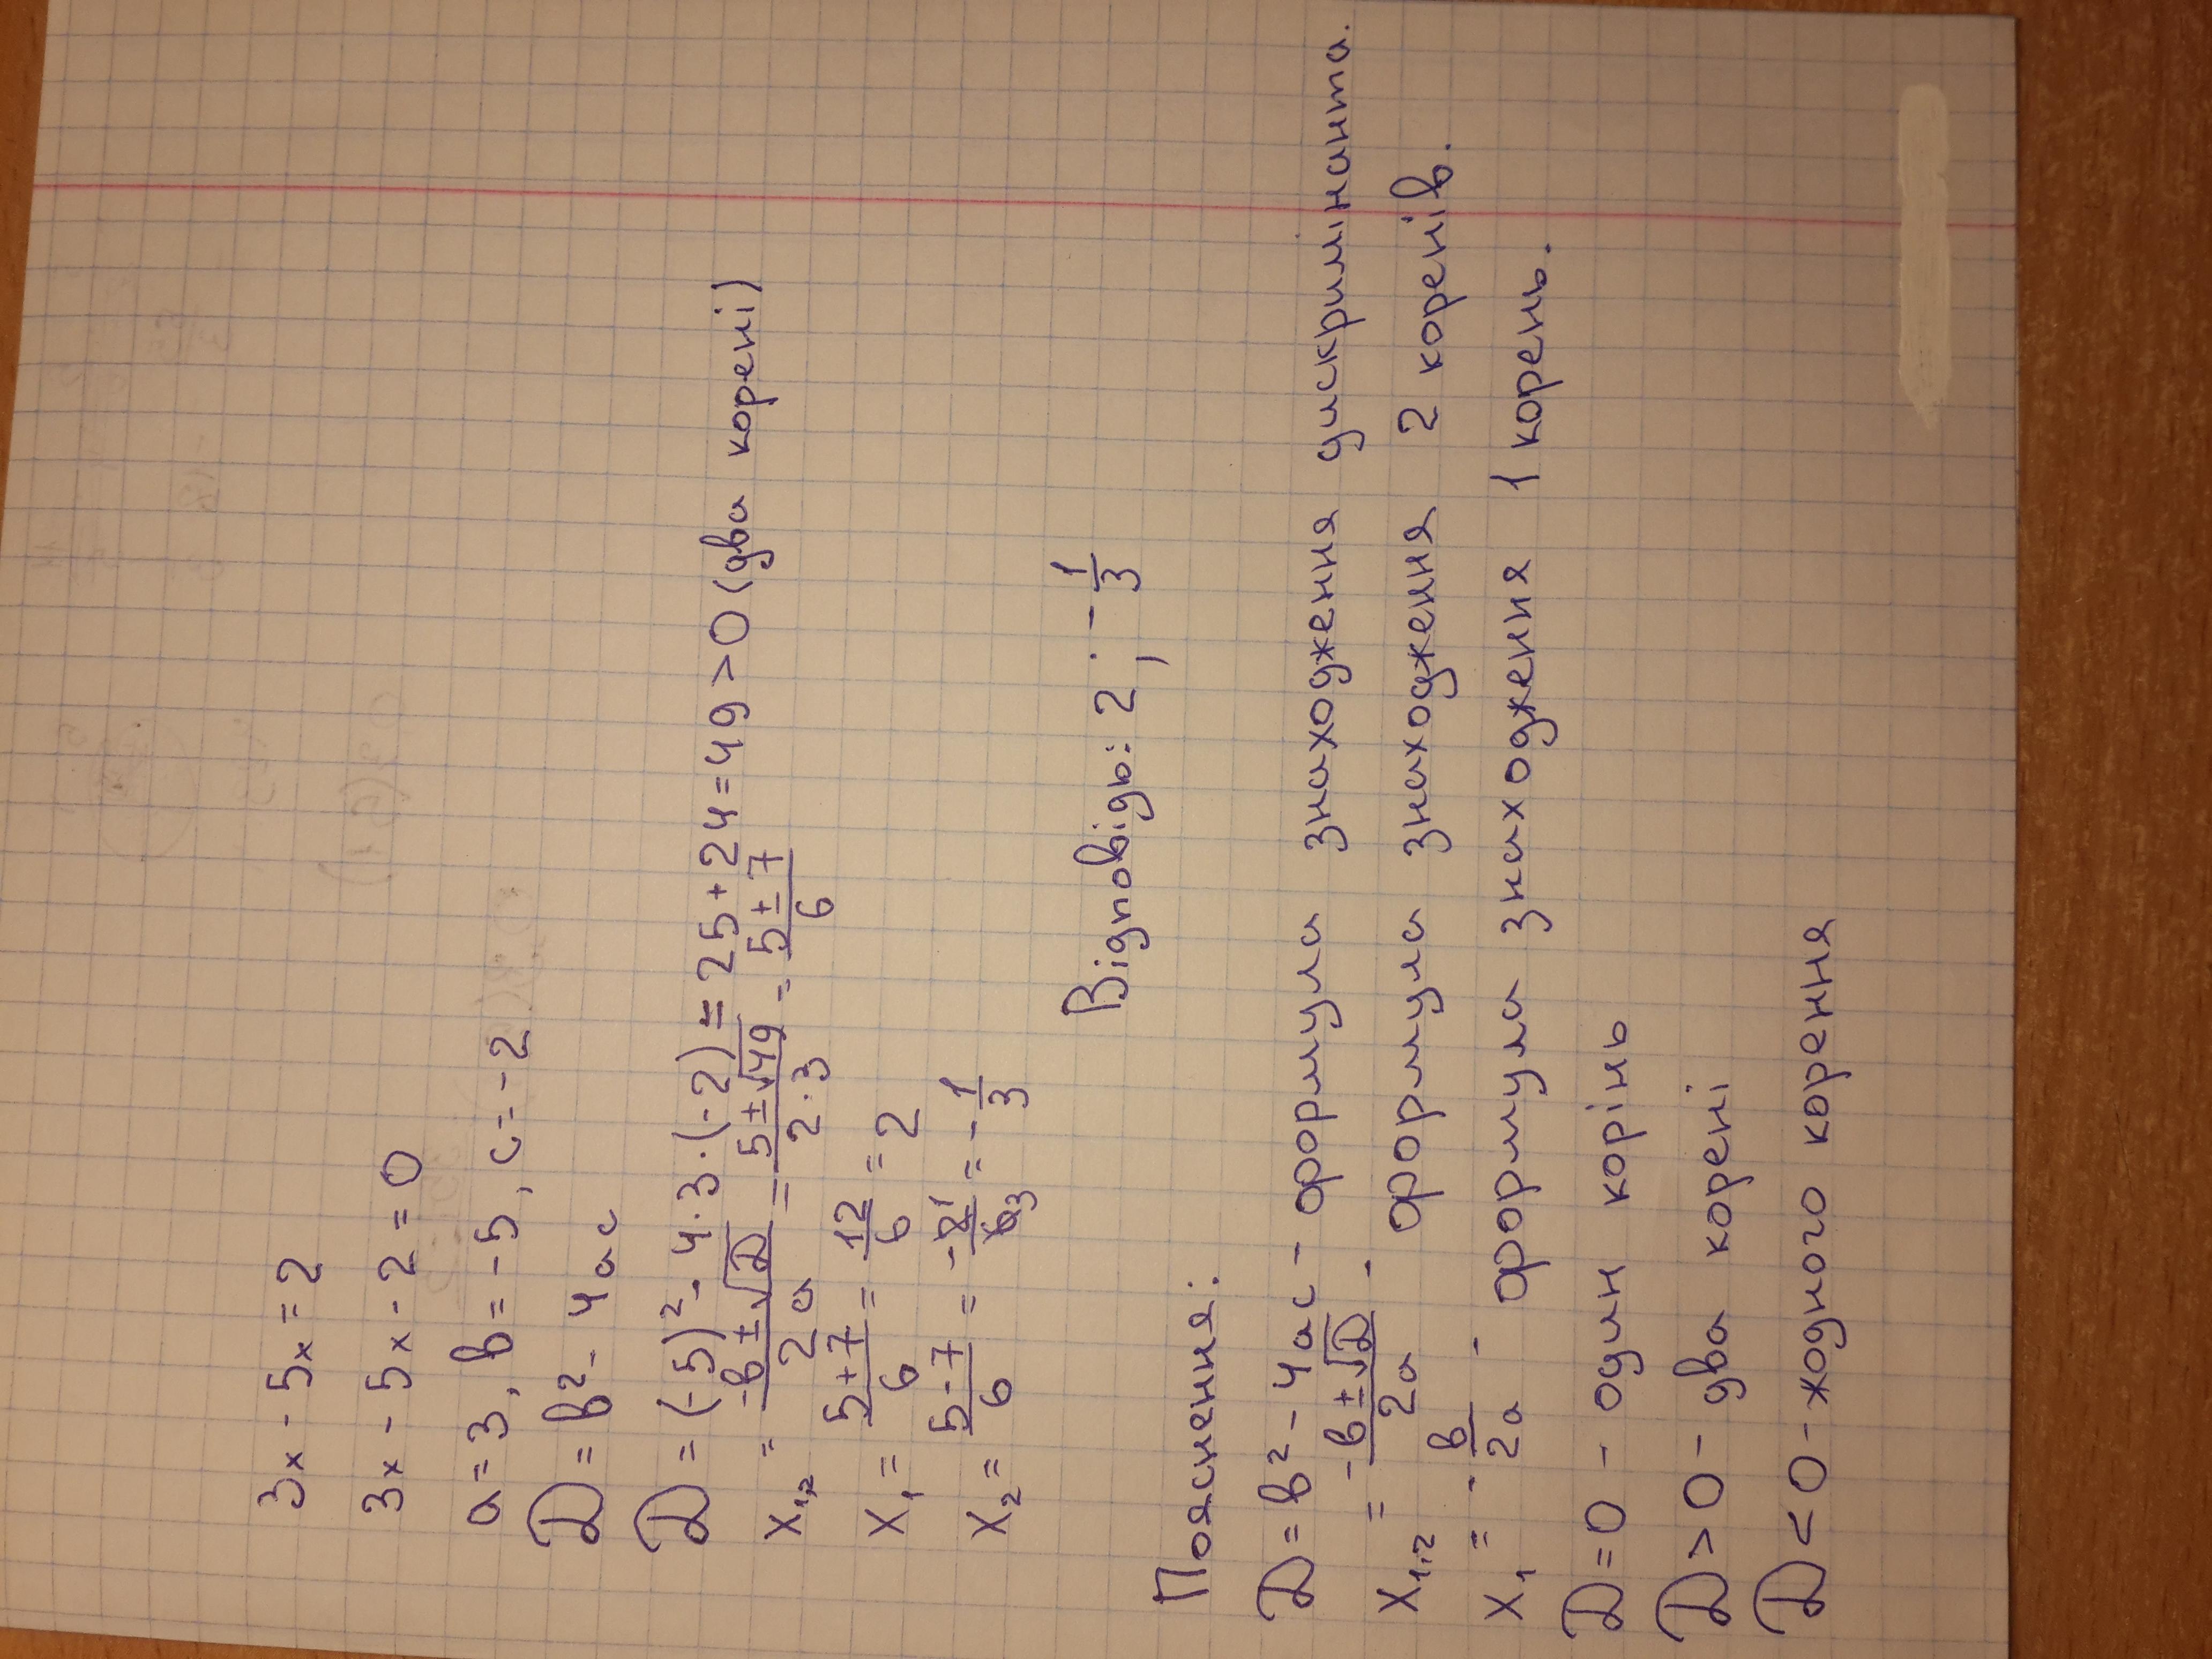 3x - 5x = 2
3x - 5x - 2 = 0
a = 3, b = -5, c = -2
D = b² - 4ac
D = (-5)² - 4·3·(-2) = 25 + 24 = 49 > 0 (два корені)
x₁,₂ = (-b ± √D)/(2a) = (5 ± √49)/(2·3) - (5 ± 7)/6
x₁ = (5+7)/6 = 12/6 = 2
x₂ = (5-7)/6 = -2¹/6₃ = -1/3
Відповідь: 2 ; -1/3
Пояснення:
D = b² - 4ac - формула знаходження дискримінанта.
x₁,₂ = (-b ± √D)/(2a) - формула знаходження 2 коренів.
x₁ = -b/(2a) - формула знаходження 1 корень.
D = 0 - один корінь
D > 0 - два корені
D < 0 - жодного корення